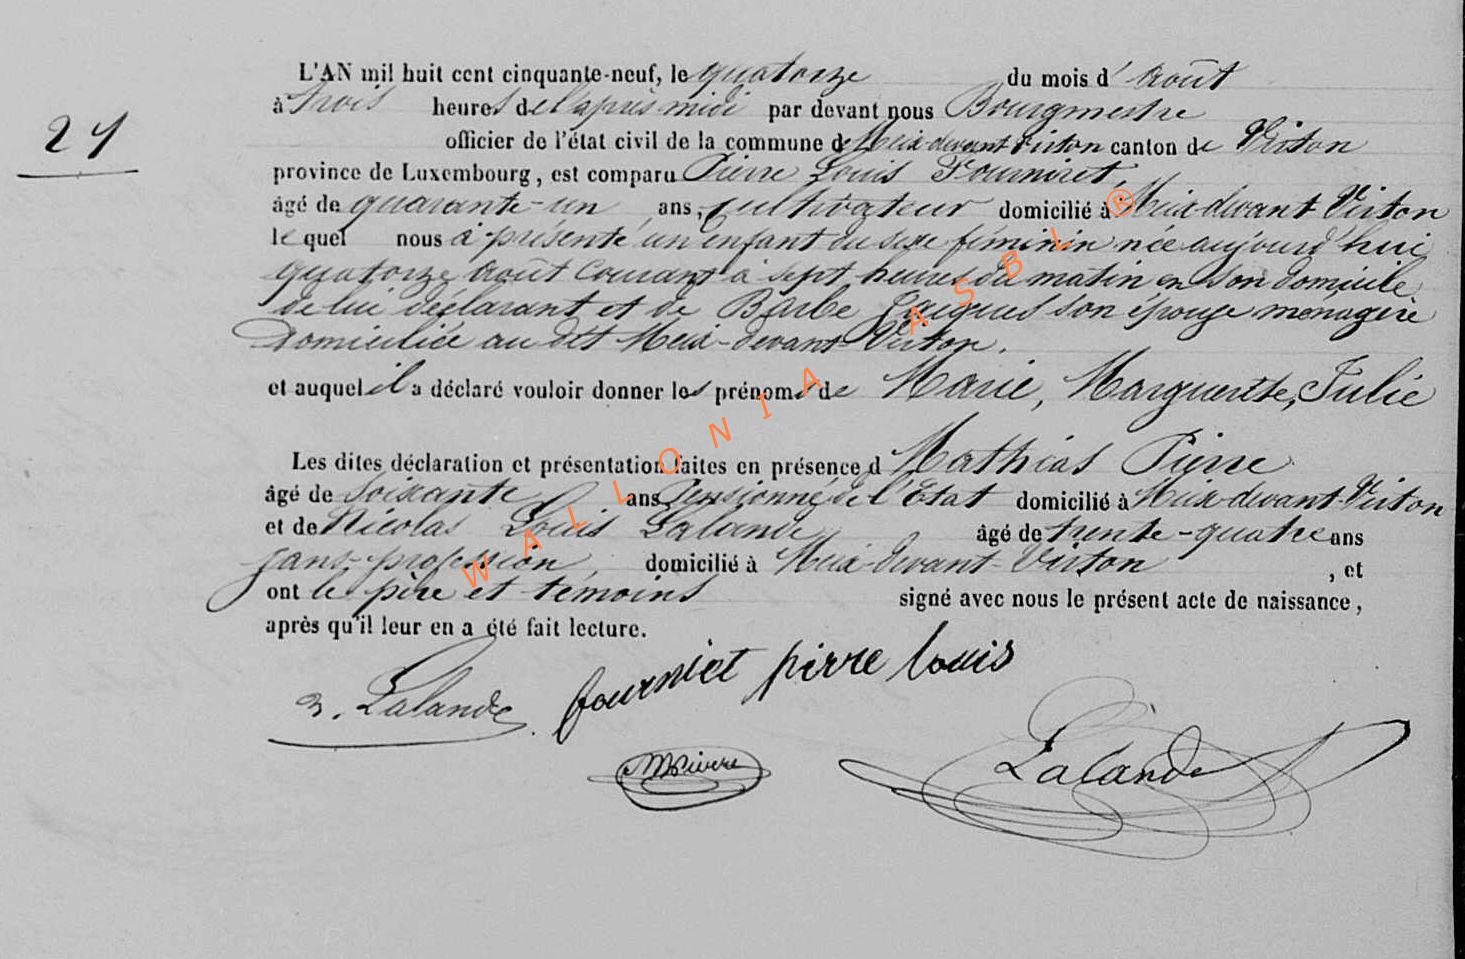 L'AN mil huit cent cinquante-neuf, le quatorze du mois d'Août
à trois heures de l'après midi par devant nous Bourgmestre
officier de l'état civil de la commune de Meix-devant-Virton canton de Virton
21
province de Luxembourg, est comparu Pierre Louis Fourniret,
âgé de quarante-un ans, cultivateur domicilié à Meix-devant-Virton
le quel nous à présenté un enfant du sexe féminin née aujourd'hui
quatorze Août courant à sept heures du matin en son domicile
de lui déclarant et de Barbe Jacques son épouse ménagère
domiciliée au dit Meix-devant-Virton.
et auquel il a déclaré vouloir donner les prénoms de Marie, Marguerite, Julie
Les dites déclaration et présentation faites en présence d Mathias Pierre
âgé de soixante ans Pensionné de l'Etat domicilié à Meix-devant-Virton
et de Nicolas Louis Lalande âgé de trente-quatre ans
sans profession, domicilié à Meix-devant-Virton, et
ont le père et témoins signé avec nous le présent acte de naissance,
après qu'il leur en a été fait lecture.
Lalande fourniet pirre louis
MPierre Lalande
WALLONIA ASBL ®